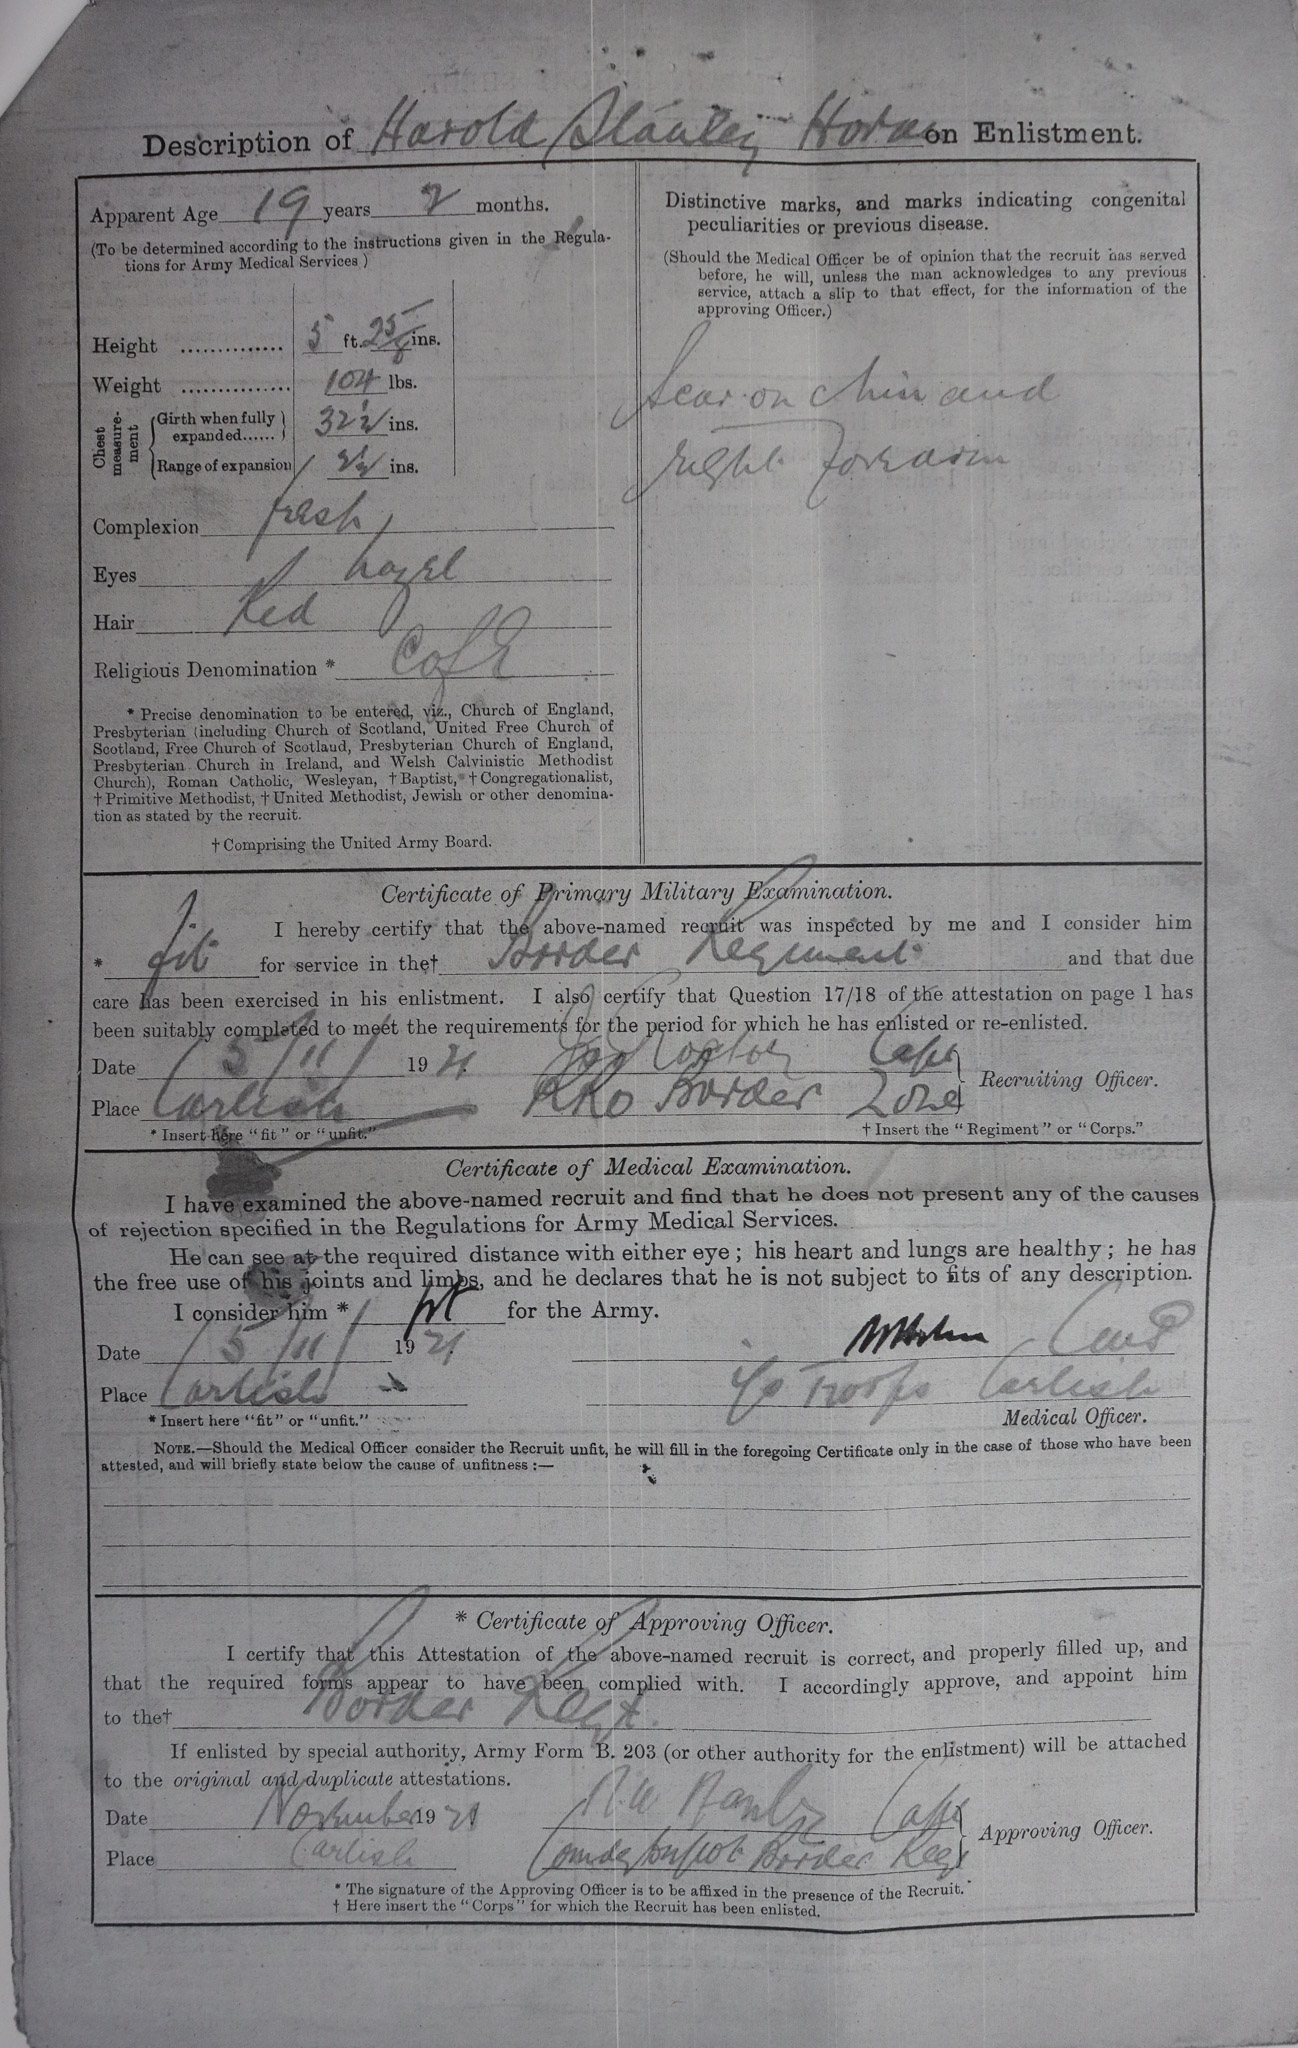 Description of Harold Stanley Horn on Enlistment.
Apparent Age 19 years 2 months.
(To be determined according to the instructions given in the Regula-
tions for Army Medical Services)
Height .............. 5 ft. 2 5/8 ins.
Weight ............... 104 lbs.
Chest measure-ment
Girth when fully expanded...... 32 1/2 ins.
Range of expansion 2 1/2 ins.
Complexion fresh
Eyes hazel
Hair Red
Religious Denomination * C of E
* Precise denomination to be entered, viz., Church of England,
Presbyterian (including Church of Scotland, United Free Church of
Scotland, Free Church of Scotland, Presbyterian Church of England,
Presbyterian Church in Ireland, and Welsh Calvinistic Methodist
Church), Roman Catholic, Wesleyan, † Baptist, † Congregationalist,
† Primitive Methodist, † United Methodist, Jewish or other denomina-
tion as stated by the recruit.
† Comprising the United Army Board.
Distinctive marks, and marks indicating congenital
peculiarities or previous disease.
(Should the Medical Officer be of opinion that the recruit has served
before, he will, unless the man acknowledges to any previous
service, attach a slip to that effect, for the information of the
approving Officer.)
Scar on chin and
right forearm
Certificate of Primary Military Examination.
I hereby certify that the above-named recruit was inspected by me and I consider him
* fit for service in the† Border Regiment and that due
care has been exercised in his enlistment. I also certify that Question 17/18 of the attestation on page 1 has
been suitably completed to meet the requirements for the period for which he has enlisted or re-enlisted.
Date 5/11/1921 Capt
Place Carlisle RRO Border Zone Recruiting Officer.
* Insert here "fit" or "unfit." † Insert the "Regiment" or "Corps."
Certificate of Medical Examination.
I have examined the above-named recruit and find that he does not present any of the causes
of rejection specified in the Regulations for Army Medical Services.
He can see at the required distance with either eye; his heart and lungs are healthy; he has
the free use of his joints and limbs, and he declares that he is not subject to fits of any description.
I consider him * fit for the Army.
Date 5/11/1921
Place Carlisle Troops Carlisle
* Insert here "fit" or "unfit." Medical Officer.
NOTE.—Should the Medical Officer consider the Recruit unfit, he will fill in the foregoing Certificate only in the case of those who have been
attested, and will briefly state below the cause of unfitness :—
* Certificate of Approving Officer.
I certify that this Attestation of the above-named recruit is correct, and properly filled up, and
that the required forms appear to have been complied with. I accordingly approve, and appoint him
to the† Border Regt.
If enlisted by special authority, Army Form B. 203 (or other authority for the enlistment) will be attached
to the original and duplicate attestations.
Date November 1921 Capt
Place Carlisle Border Regt Approving Officer.
* The signature of the Approving Officer is to be affixed in the presence of the Recruit.
† Here insert the "Corps" for which the Recruit has been enlisted.